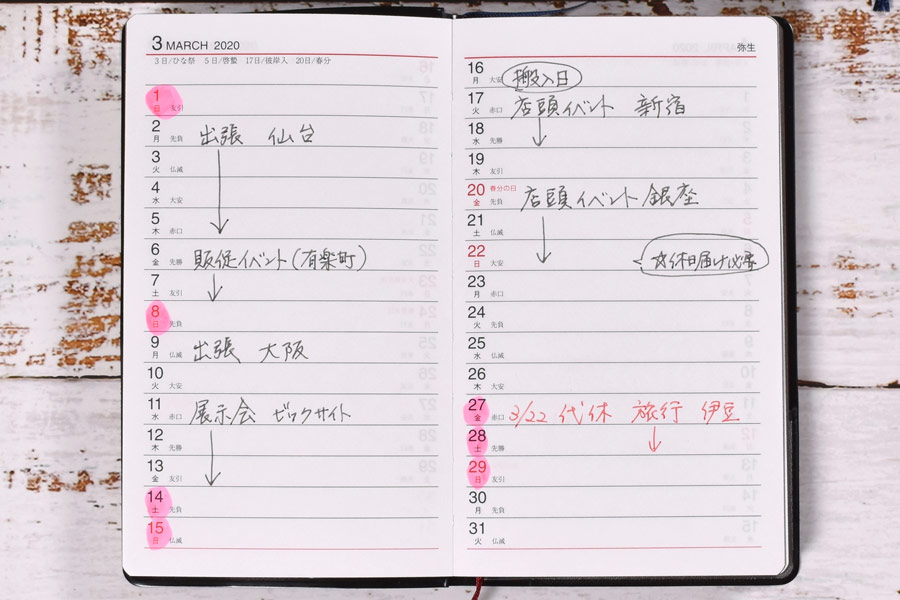 3 MARCH 2020
3日/ひな祭 5日/啓蟄 17日/彼岸入 20日/春分
1 日 友引
2 月 先負 出張 仙台
3 火 仏滅
4 水 大安
5 木 赤口
6 金 先勝 販促イベント(有楽町)
7 土 友引
8 日 先負
9 月 仏滅 出張 大阪
10 火 大安
11 水 赤口 展示会 ビックサイト
12 木 先勝
13 金 友引
14 土 先負
15 日 仏滅
弥生
16 月 大安 搬入日
17 火 赤口 店頭イベント 新宿
18 水 先勝
19 木 友引
20 春分の日 金 先負 店頭イベント 銀座
21 土 仏滅
22 日 大安 代休届け必要
23 月 赤口
24 火 先負
25 水 仏滅
26 木 大安
27 金 赤口 3/22 代休 旅行 伊豆
28 土 先勝
29 日 友引
30 月 先負
31 火 仏滅